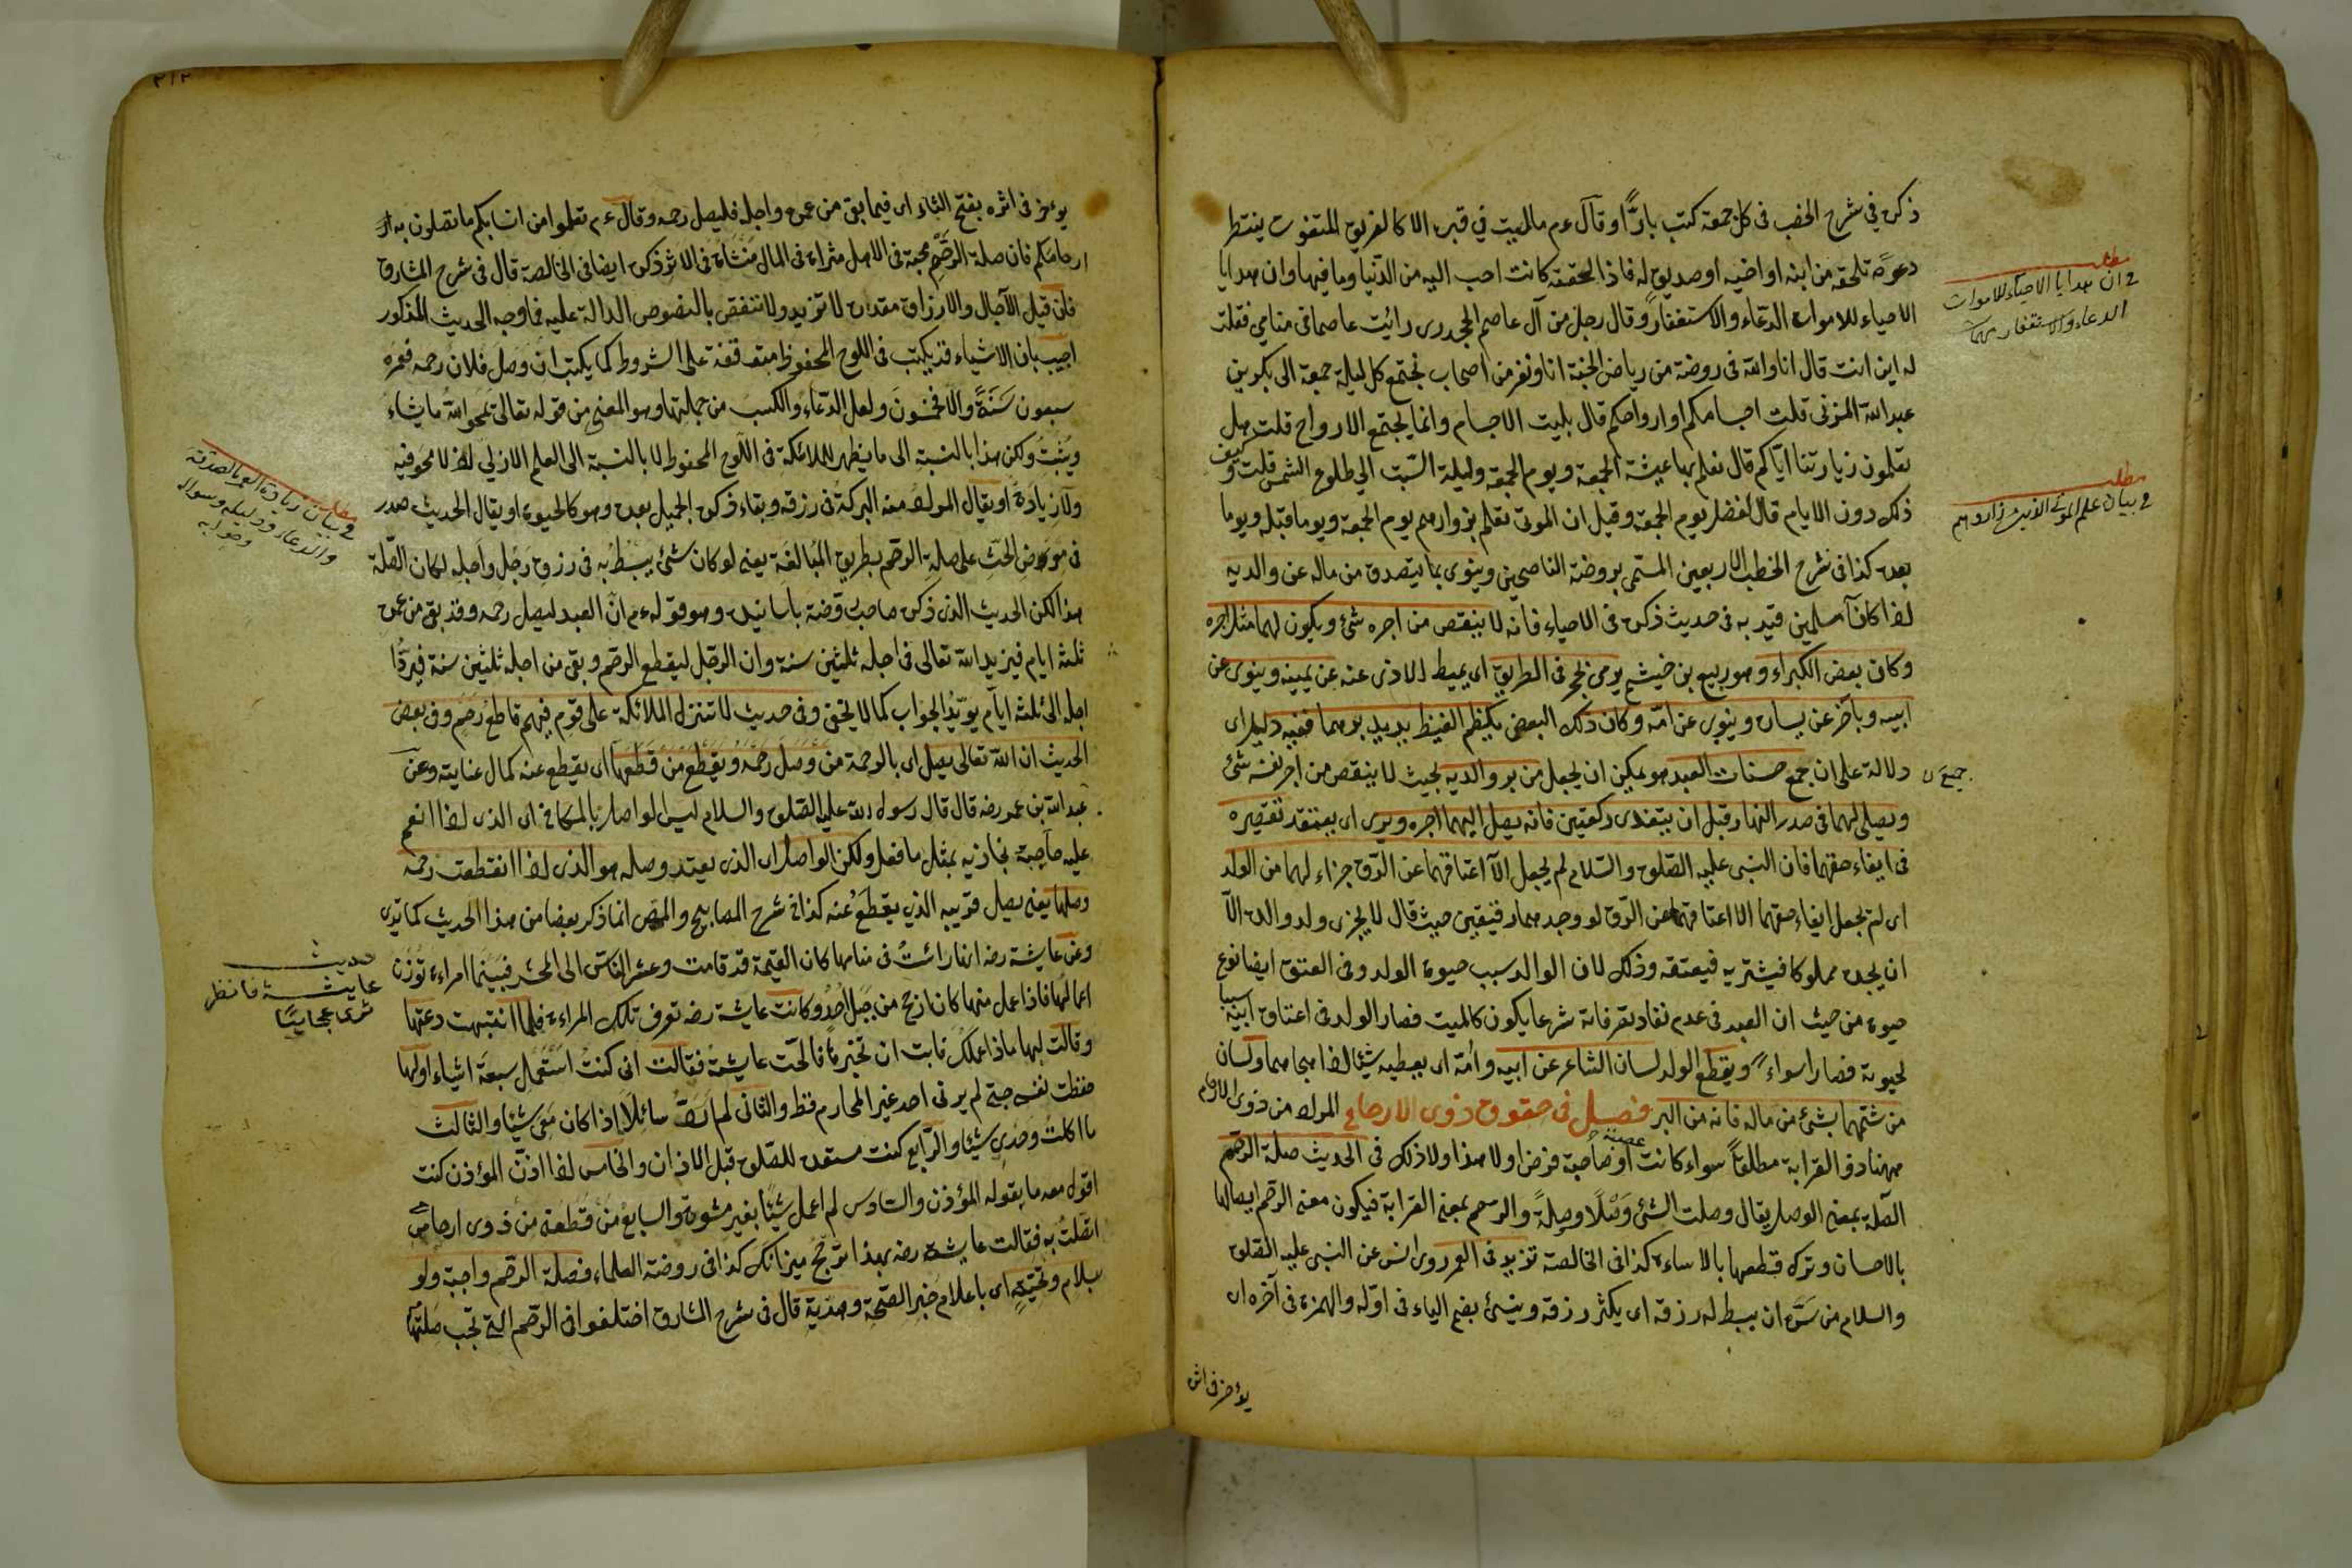 ذكره في شرح الخطب في كل جمعة كتب بارًّا وقال ءم ما الميت في قبره الا كالغريق المتغوث ينتظر
دعوة تلحقه من ابنه او اخيه او صديق له فاذا لحقته كانت احب اليه من الدنيا وما فيها وان هدايا
الاحياء للاموات الدعاء والاستغفار وقال رجل من آل عاصم الجحدرى رائيت عاصما فى منامي فقلت
له اين انت قال انا والله فى روضة من رياض الجنة انا ونفر من اصحابى نجتمع كل ليلة جمعة الى بكر بن
عبد الله المزنى قلت اجسامكم او ارواحكم قال بليت الاجسام وانما يجتمع الارواح قلت هل
تعلمون زيارتنا اياكم قال نعلم بها عيشة الجمعة ويوم الجمعة وليلة السبت الي طلوع الشمس قلت وكيف
ذلك دون الايام قال لفضل يوم الجمعة وقيل ان الموتى تعلم بزوارهم يوم الجمعة ويوما قبله ويوما
بعده كذا فى شرح الخطب الاربعين المسمى بروضة الناصحين وينوى بما يتصدق من ماله عن والديه
اذا كانا مسلمين قيد به فى حديث ذكره فى الاحياء فانه لا ينقص من اجره شئ ويكون لهما مثل اجره
وكان بعض الكبراء وهو ربيع بن خيثم يومى بحجر فى الطريق اى يميط الاذى عنه عن يمينه وينوى عن
ابيه وبآخر عن يساره وينوى عن امه وكان ذلك البعض يكظم الغيظ يريد برهما ففيه دليل اى
دلالة على ان جمع حسنات العبد هو يمكن ان يجعل من بر والديه بحيث لا ينقص من اجر نفسه شئ
ويصلى لهما فى صدر النهار قبل ان يتغدى ركعتين فانه يصل اليهما اجره ويرى اى يعتقد تقصيره
فى ايفاء حقهما فان النبى عليه الصلوة والسلام لم يجعل الا اعتاقهما عن الرق جزاء لهما من الولد
اى لم يجعل ايفاء حقهما الا اعتاقهما عن الرق لو وجدهما رقيقين حيث قال لا يجزى ولد والده الا
ان يجده مملوكا فيشتريه فيعتقه وذلك لان الوالد سبب حيوة الولد وفى العتق ايضا نوع
حيوة من حيث ان العبد فى عدم نفاد تصرفاته شرعا يكون كالميت فصار الولد فى اعتاق ابيه سببا
لحيوته فصارا سواء ويقطع الولد لسان الشاعر عن ابيه وامه اى يعطيه شيئا اذا هجاهما ولسان
من شتمهما بشئ من ماله فانه من البر فصل فى حقوق ذوى الارحام المراد من ذوى الارحام
ههنا ذو القرابة مطلقا سواء كانت عصبة او صاحبة فرض او لا هذا ولا ذلك فى الحديث صلة الرحم
الصلة بمعنى الوصل يقال وصلت الشئ وَصْلًا وصِلةً والرحم بمعنى القرابة فيكون معنى الرحم ايصالها
بالاحسان وترك قطعها بالاساءة كذا فى الخالصة تزيد فى العمر روى انس عن النبى عليه الصلوة
والسلام من سَرّه ان يبسط له رزقه اى يكثر رزقه وينسئ بضم الياء فى اوله والهمزة فى آخره اى
يؤخر فى اثره
مطلب
فى ان هدايا الاحياء للاموات
الدعاء والاستغفار
مطلب
فى بيان علم الموتى الذين زاروهم
جميع ن
٢١٢
يوءخر فى اثره بفتح الثاء اى فيما بقى من عمره واجله فليصل رحمه وقال ءم تعلموا من انسابكم ما تصلون به
ارحامكم فان صلة الرَّحِم محبة فى الاهل مثراة فى المال منسَأة فى الاثر ذكره ايضا فى الخالصة قال فى شرح المشارق
فان قيل الآجال والارزاق مقدرة لا تزيد ولا تنقص بالنصوص الدالة عليه فما وجه الحديث المذكور
اجيب بان الاشياء قد يكتب فى اللوح المحفوظ متوقفة على الشروط كما يكتب ان وصل فلان رحمه فعمره
سبعون سَنَةً والا فخمسون ولعل الدعاء والكسب من جملتها وهو المعنى من قوله تعالى يمحو الله ما يشاء
ويُثبت ولكن هذا بالنسبة الى ما يظهر للملائكة فى اللوح المحفوظ لا بالنسبة الى العلم الازلي اذ لا محو فيه
ولا زيادة او يقال المراد منه البركة فى رزقه وبقاء ذكره الجميل بعده وهو كالحيوة او يقال الحديث صدر
فى مَوضِع الحَثِّ على صلة الرحم بطريق المُبالغَة يعنى لو كان شئ يبسُط به فى رزق رَجُل واَجَله لكان الصلة
هذا لكن الحديث الذى ذكره صاحب روضة باسانيده وهو قوله ءم انّ العبد ليصل رحمه وقد بقى من عمره
ثلثة ايام فيزيد الله تعالى فى اجله ثلثين سنة وان الرجل ليقطع الرحم وبقى من اجله ثلثين سنة فيردُّ
اجله الى ثلثة ايام يؤيّدُ الجواب كما لا يخفى وفى حديث لا تتنزل الملائكة على قوم فيهم قاطع رَحِم وفى بعض
الحديث ان الله تعالى يصل اى بالرحمة من وَصل رحمه ويقطع من قَطَعها اى يقطع عنه كمال عنايته وعن
عبد الله بن عمر رضه قال قال رسول الله عليه الصلوة والسلام ليس الواصل بالمكافى اى الذى اذا انعم
عليه صاحبه يجازيه بمثل ما فعل ولكن الواصل اى الذى يعتد وصله هو الذى اذا انقطعت رحمه
وصلها يعنى يصل قريبه الذي يقطعُ عنه كذا فى شرح المصابيح والمص انما ذكر بعضا من هذا الحديث كما ترى
وعن عايشة رضه انها رائتْ فى منامها كان القيمة قد قامت وحشر الناس الى المحشر فبينما امراءة توزن
اعمالها فاذا عمل منها كان ارجح من جبل اُحُد وكانت عايشة رضه تعرف تلك المراءة فلما انتبهت دعتها
وقالت لها ماذا عملك فابت ان تخبرها فالحّت عايشة فقالت انى كنتُ استعمل سبعة اشياء اولها
حفظت نفسى حتى لم يرنى احد غير المحارم قط والثانى لم اَردّ سائلًا اذا كان معى شيئا والثالث
ما اكلت وحدى شيئا والرابع كنت مستعدة للصلوة قبل الاذان والخامس اذا اذّن المؤذن كنت
اقول معه ما يقوله المؤذن والسادس لم اعمل شيئا بغير مشورة والسابع من قَطعنى من ذوى ارحامى
اتصلتُ به فقالت عايشة رضه بهذا ترجّح ميزانك كذا فى روضة العلماء فصلة الرحم واجبة ولو
بسلام وتحيّةٍ اى باعلام خبر الصحة وهديّة قال فى شرح المشارق اختلفوا فى الرحم التى تجب صلتها
مطلب
فى بيان زيادة العمر بالصدقة
والدعاء ودليله وسواله
وجوابه
حديث
عايشة فانظر
ترى عجايبًا